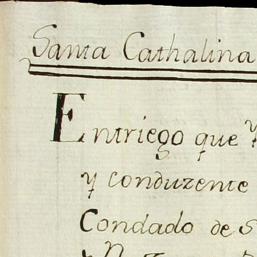 Santa Cathalina
Entriego que
y conduzente
Condado de